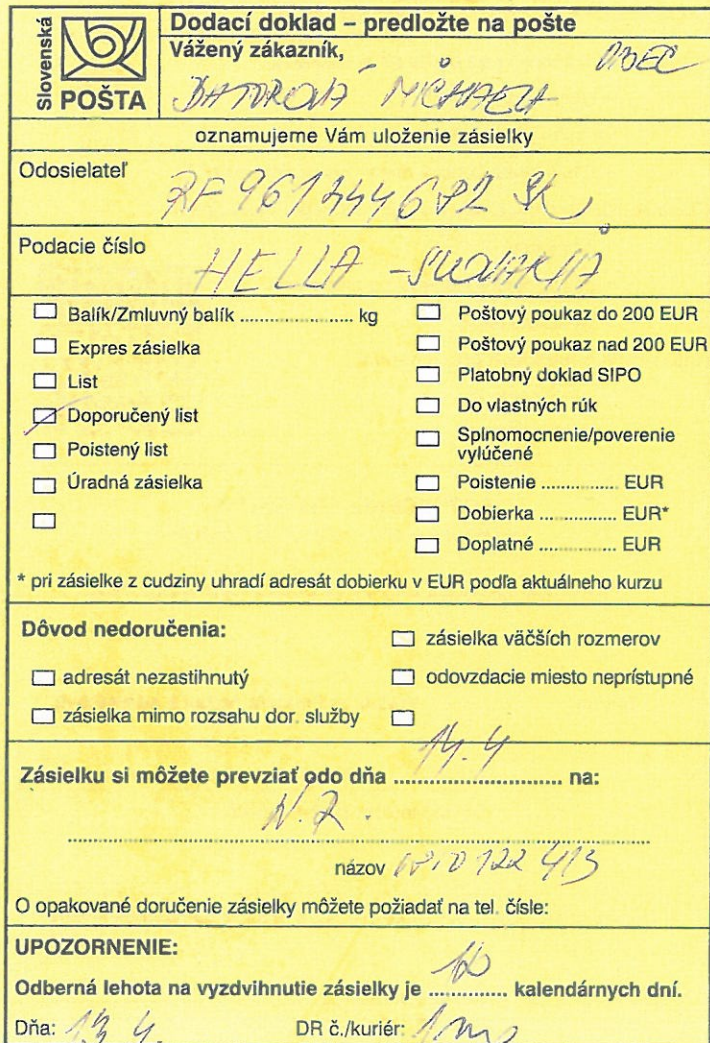 Slovenská
POŠTA
Dodací doklad – predložte na pošte
Vážený zákazník,
oznamujeme Vám uloženie zásielky
Odosielateľ
SK
Podacie číslo
HELLA -
Balík/Zmluvný balík ...................... kg
Expres zásielka
List
Doporučený list
Poistený list
Úradná zásielka
Poštový poukaz do 200 EUR
Poštový poukaz nad 200 EUR
Platobný doklad SIPO
Do vlastných rúk
Splnomocnenie/poverenie
vylúčené
Poistenie ............... EUR
Dobierka ............... EUR*
Doplatné ............... EUR
* pri zásielke z cudziny uhradí adresát dobierku v EUR podľa aktuálneho kurzu
Dôvod nedoručenia:
zásielka väčších rozmerov
adresát nezastihnutý
odovzdacie miesto neprístupné
zásielka mimo rozsahu dor. služby
14.4
Zásielku si môžete prevziať odo dňa ............................ na:
názov
O opakované doručenie zásielky môžete požiadať na tel. čísle:
UPOZORNENIE:
Odberná lehota na vyzdvihnutie zásielky je ............. kalendárnych dní.
Dňa: 13.4. DR č./kuriér: